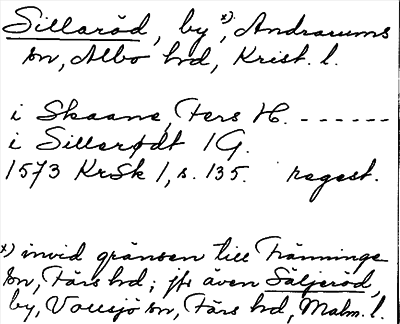 Sillaröd, by x), Andrarums
sn, Albo hd, Krist. l.
i Skaane, Fers H. ------
i Sillerødt 1 G.
1573 KrSk 1, s. 135. regest.
x) invid gränsen till Tranninge
sn, Färs hd; jfr även Säljeröd,
by, Vollsjö sn, Färs hd, Malm. l.